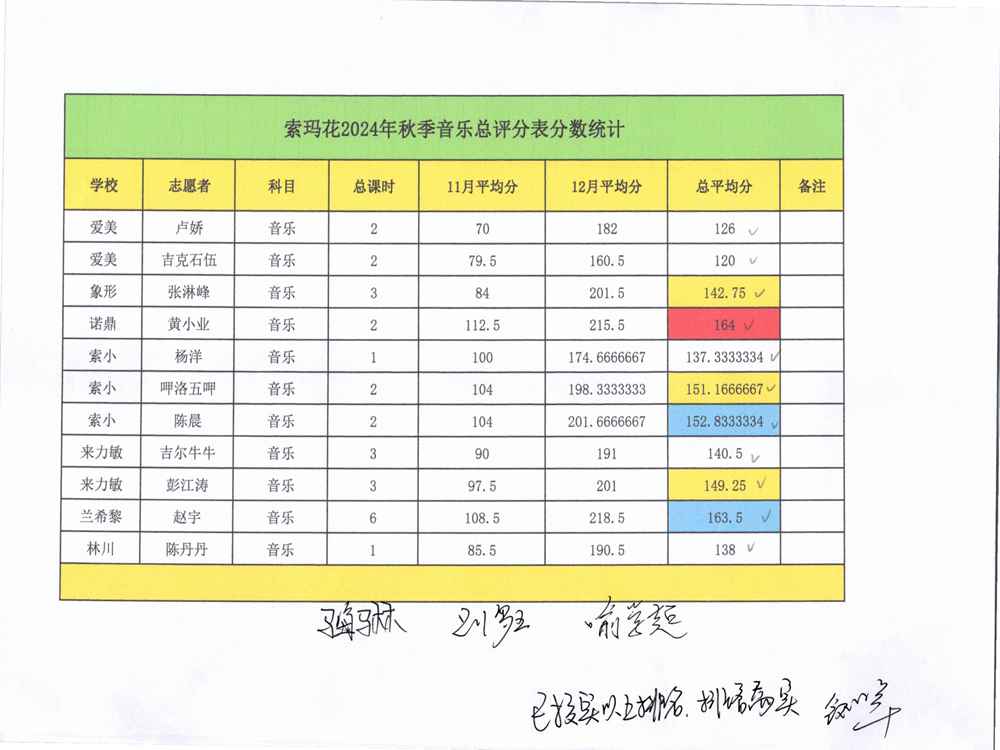 索玛花2024年秋季音乐总评分表分数统计
学校 志愿者 科目 总课时 11月平均分 12月平均分 总平均分 备注
爱美 卢娇 音乐 2 70 182 126
爱美 吉克石伍 音乐 2 79.5 160.5 120
象形 张淋峰 音乐 3 84 201.5 142.75
诺鼎 黄小业 音乐 2 112.5 215.5 164
索小 杨洋 音乐 1 100 174.6666667 137.3333334
索小 呷洛五呷 音乐 2 104 198.3333333 151.1666667
索小 陈晨 音乐 2 104 201.6666667 152.8333334
来力敏 吉尔牛牛 音乐 3 90 191 140.5
来力敏 彭江涛 音乐 3 97.5 201 149.25
兰希黎 赵宇 音乐 6 108.5 218.5 163.5
林川 陈丹丹 音乐 1 85.5 190.5 138
已核实以上排名